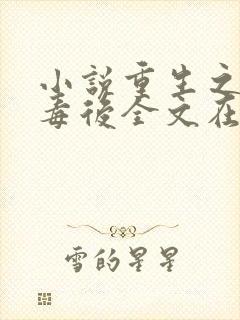 小說重生之
毒後全文在
雪的星星